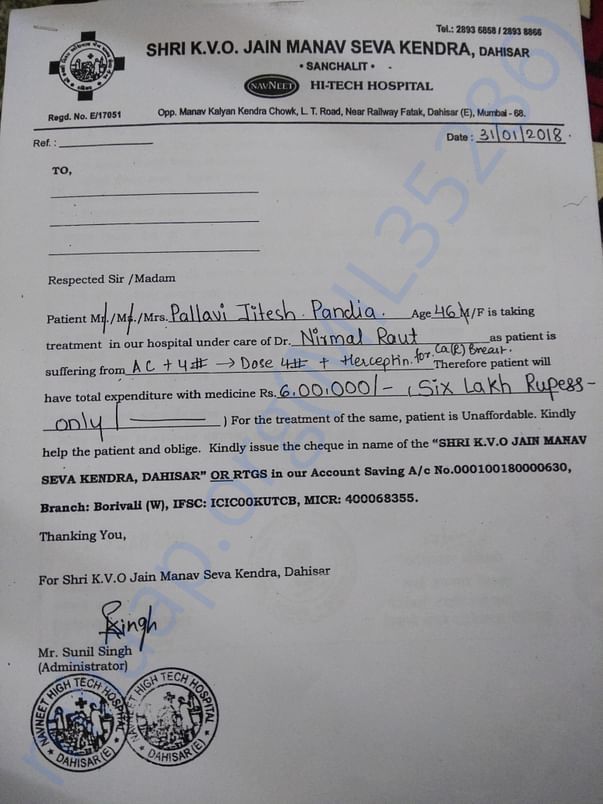 Tel.: 2893 6858 / 2893 8866
SHRI K.V.O. JAIN MANAV SEVA KENDRA, DAHISAR
• SANCHALIT •
NAVNEET HI-TECH HOSPITAL
Regd. No. E/17051
Opp. Manav Kalyan Kendra Chowk, L. T. Road, Near Railway Fatak, Dahisar (E), Mumbai - 68.
Ref. :
Date : 31/01/2018.
TO,
Respected Sir /Madam
Patient Mr./Ms./Mrs. Pallavi Jitesh Pandia. Age 46 M/F is taking
treatment in our hospital under care of Dr. Nirmal Raut as patient is
suffering from AC + 4# → Dose 4# + Herceptin. for Ca(R) Breast. Therefore patient will
have total expenditure with medicine Rs. 6,00,000/- (Six Lakh Rupess-
only ) For the treatment of the same, patient is Unaffordable. Kindly
help the patient and oblige. Kindly issue the cheque in name of the "SHRI K.V.O JAIN MANAV
SEVA KENDRA, DAHISAR" OR RTGS in our Account Saving A/c No.000100180000630,
Branch: Borivali (W), IFSC: ICIC00KUTCB, MICR: 400068355.
Thanking You,
For Shri K.V.O Jain Manav Seva Kendra, Dahisar
Singh
Mr. Sunil Singh
(Administrator)
NAVNEET HIGH TECH HOSPITAL
DAHISAR (E)
NAVNEET HIGH TECH HOSPITAL
DAHISAR (E)